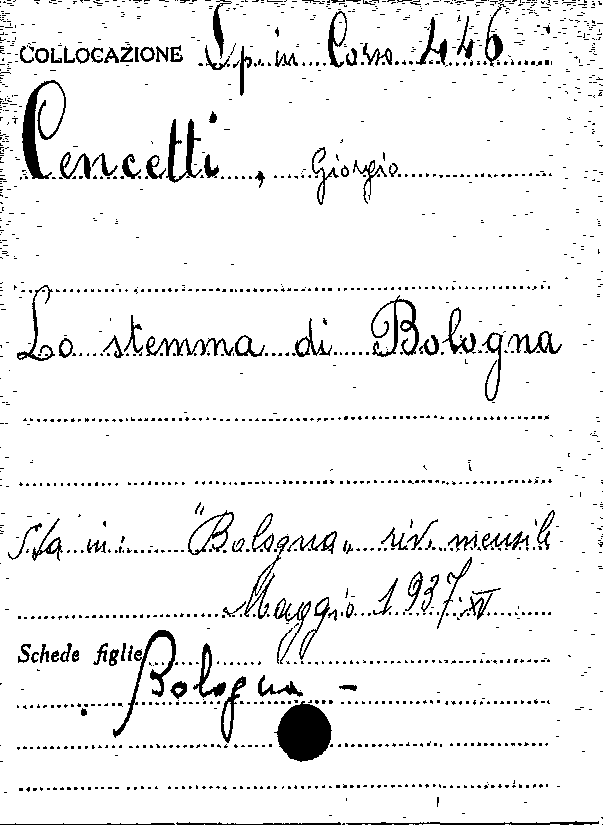 COLLOCAZIONE Sp. in Corso 446
Cencetti, Giorgio
Lo stemma di Bologna
Sta in: "Bologna" riv. mensile
Maggio 1937.XV
Schede figlie Bologna -